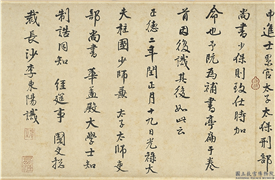 中進士累官太子太保刑部
尚書少保則致仕時加
命也予既為補書亭扁于卷
首因復識其後如此云
正德二年閏正月十九日光祿大
夫柱國少師兼太子太師吏
部尚書華蓋殿大學士知
制誥同知經筵事國史總
裁長沙李東陽識